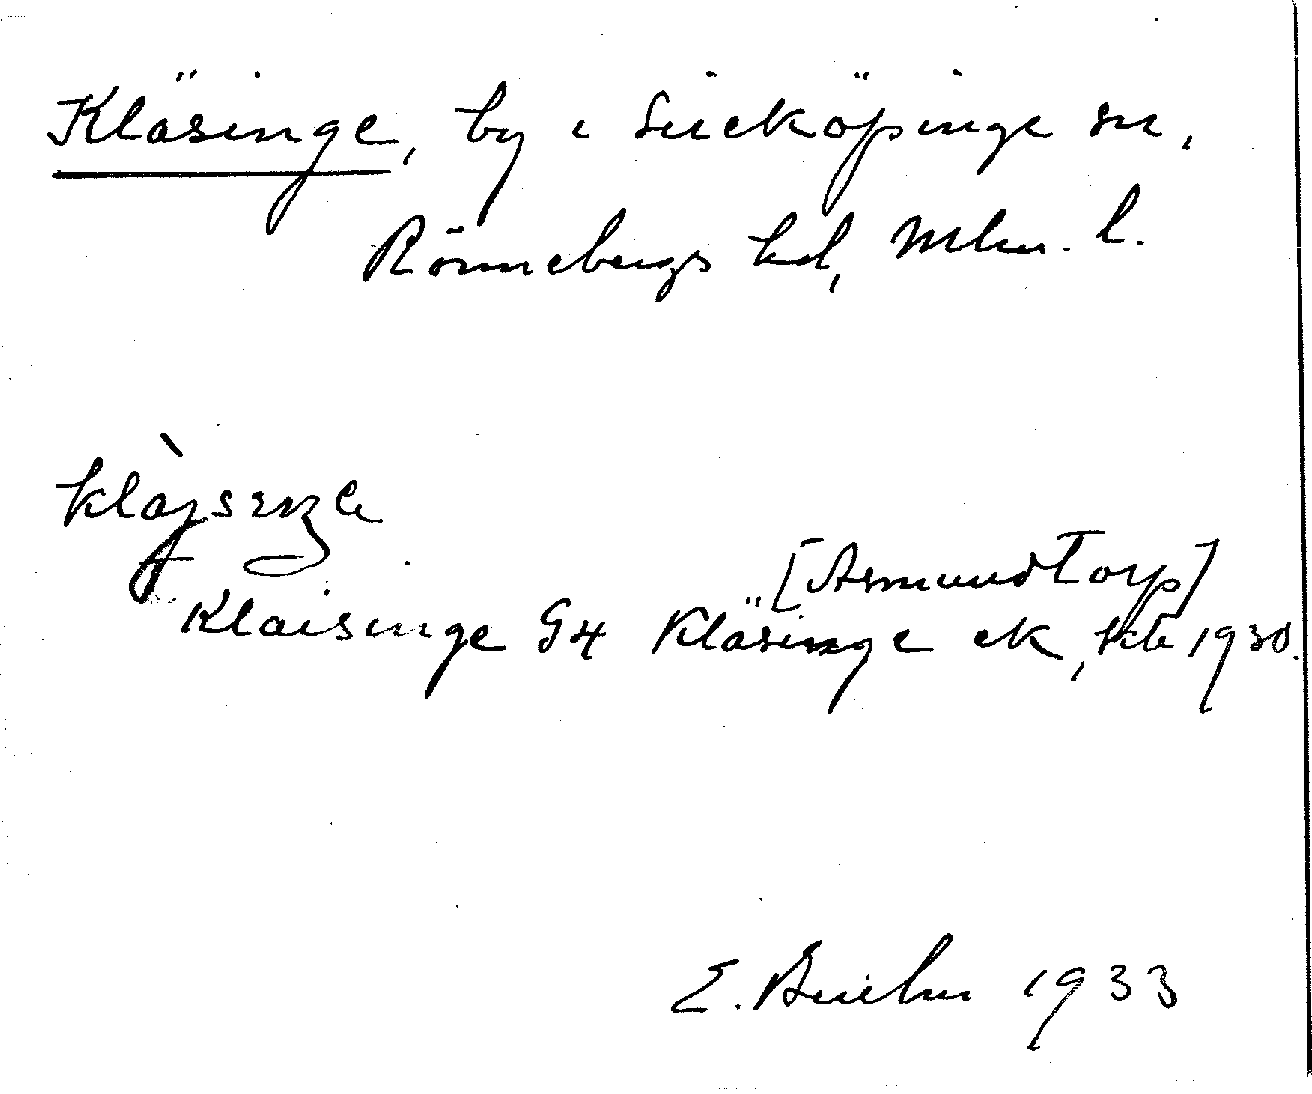 Kläsinge, by i Sireköpinge sn,
Rönnebergs hd, Mlm. l.
[Asmundtorp]
Klaisinge G4 Kläsinge ek, kb 1930.
E. 1933